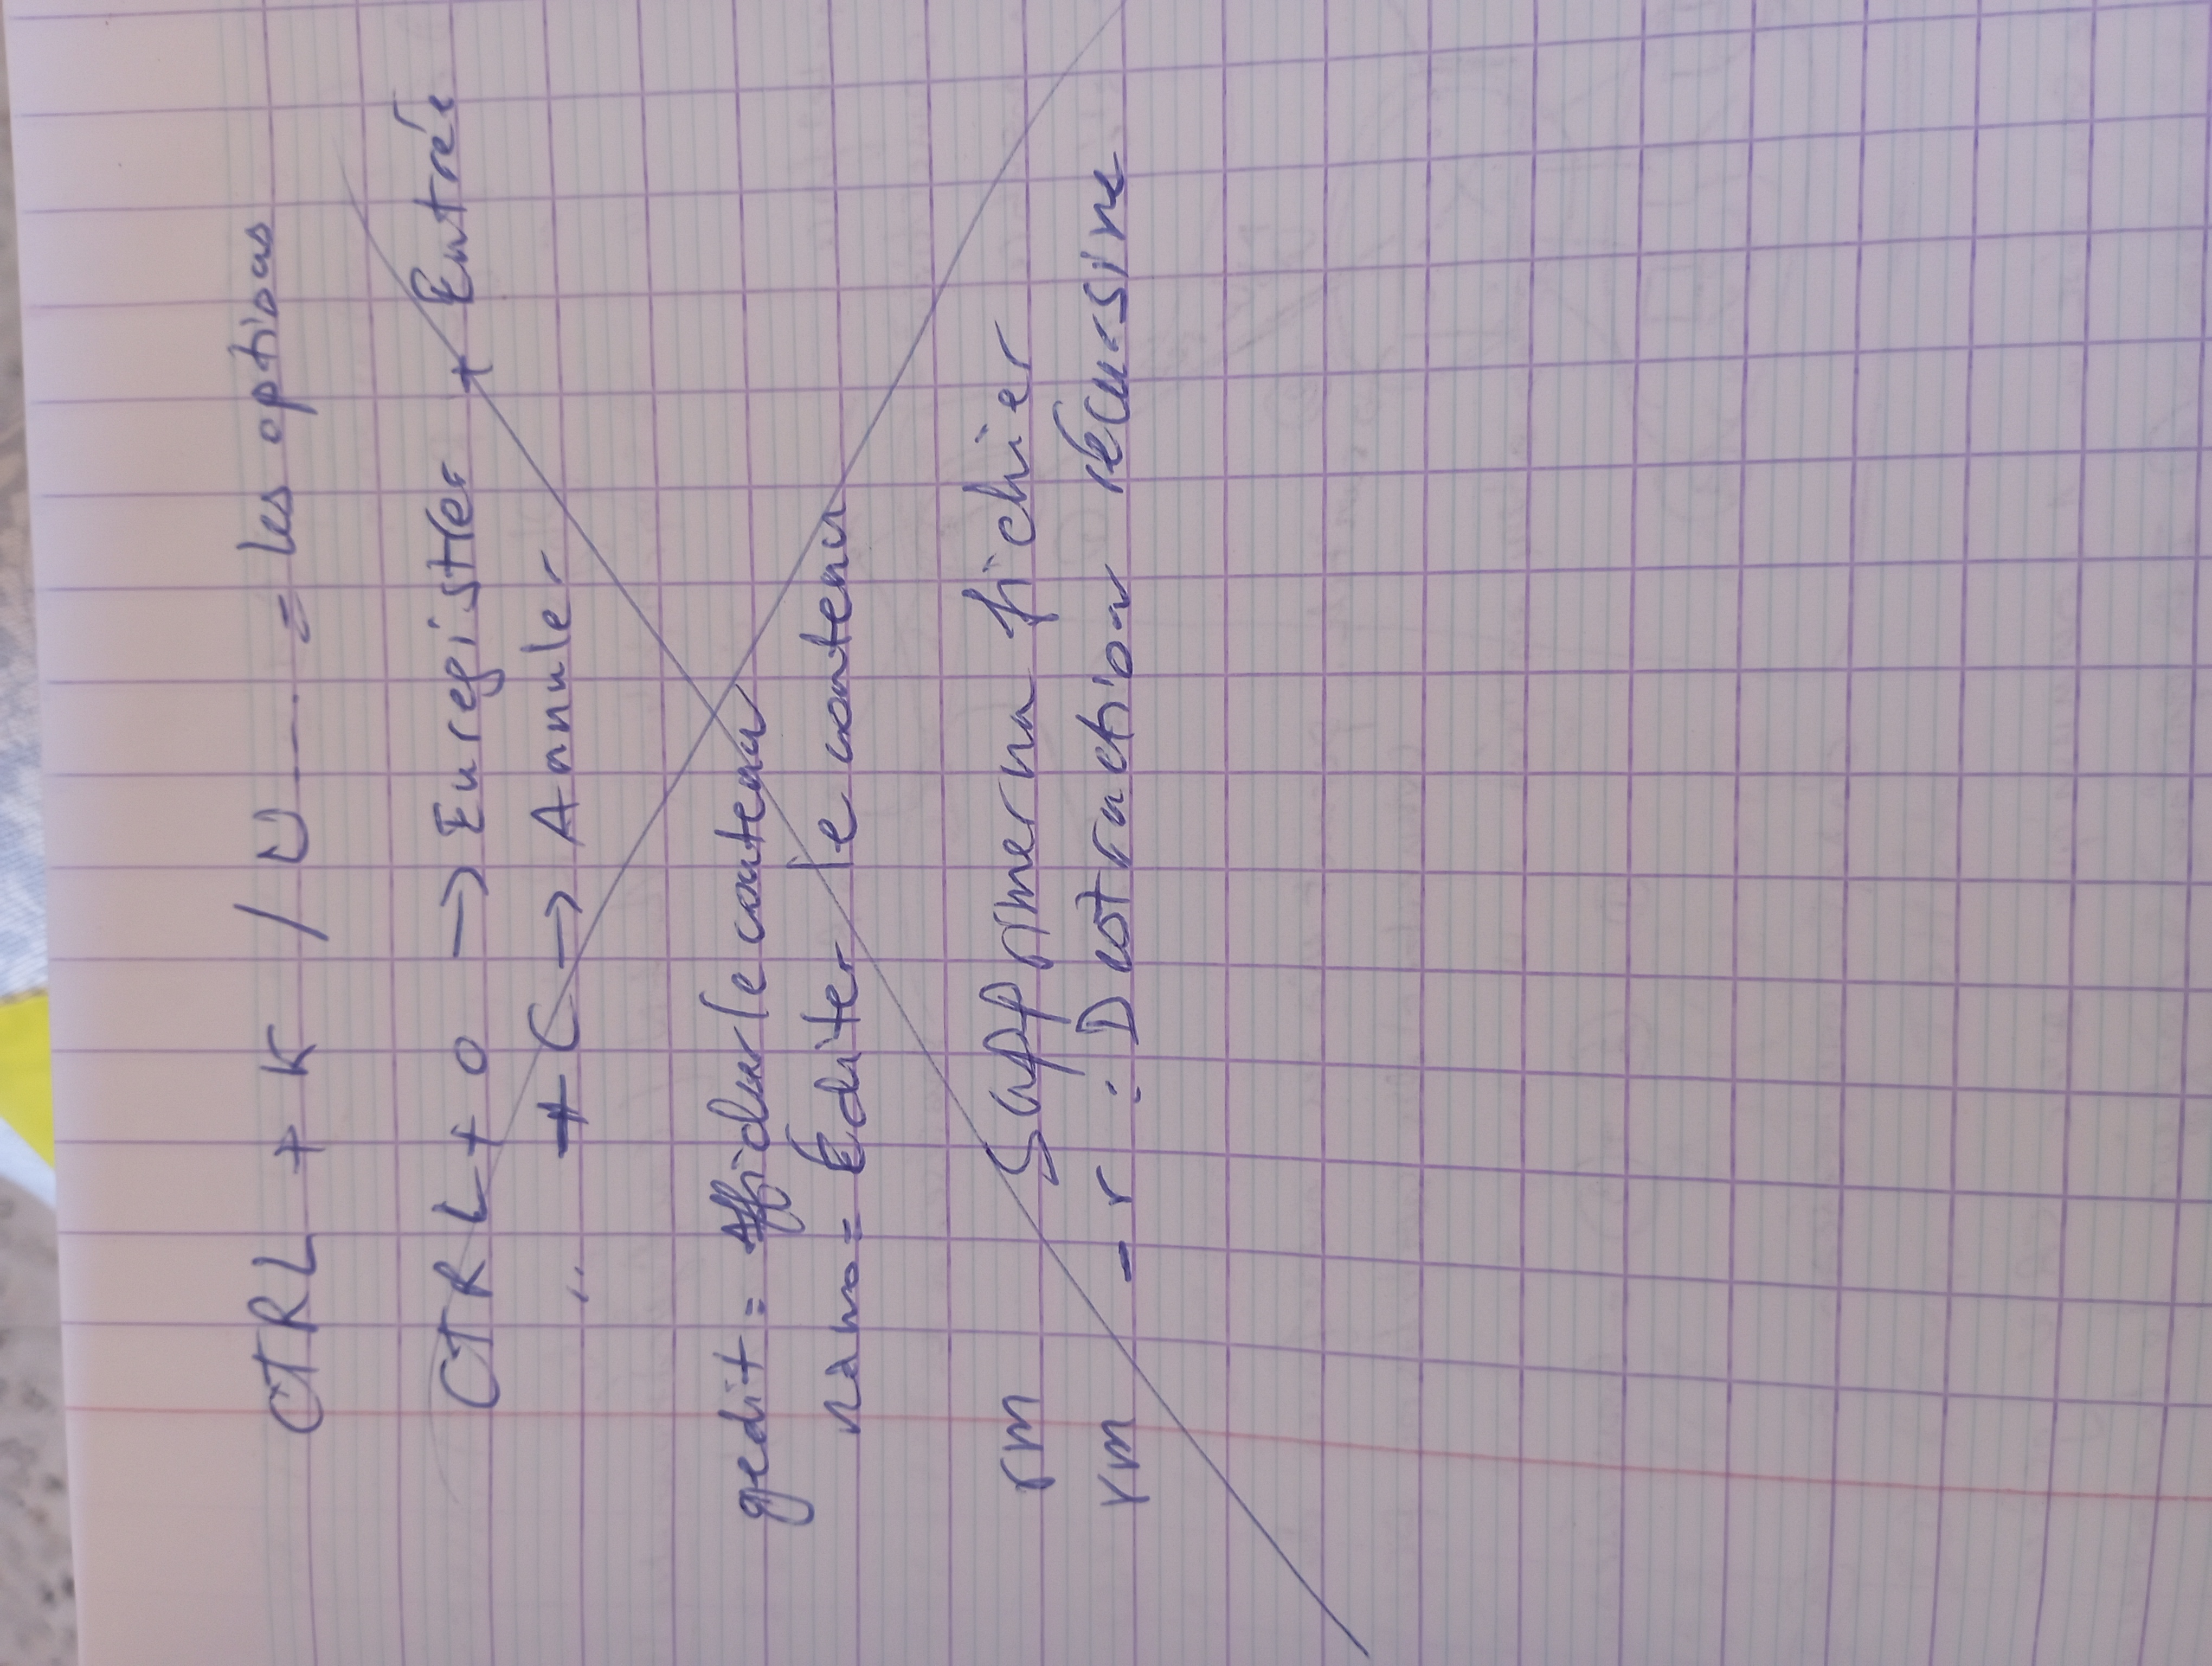 CTRL + K / U --- = les options
CTRL + O → Enregistrer + Entrée
" + C → Annuler
gedit = Afficher le contenu
nano = Éditer le contenu
rm Supprimer un fichier
rm -r : Destruction récursive